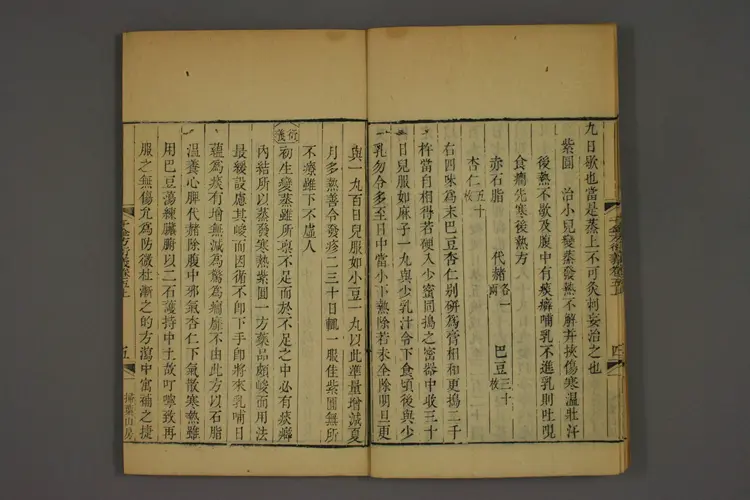 九日歇也當是蒸上不可灸刺妄治之也
紫圓　治小兒變蒸發熱不解并挾傷寒溫壯汗
後熱不歇及腹中有痰癖哺乳不進乳則吐哯
食癎先寒後熱方
赤石脂　代赭各一兩　巴豆三十枚
杏仁五十枚
右四味為末巴豆杏仁別研為膏相和更搗二千
杵當自相得若硬入少蜜同搗之密器中收三十
日兒服如麻子一丸與少乳汁令下食頃後與少
乳勿令多至日中當小下熱除若未全除明旦更
與一丸百日兒服如小豆一丸以此準量增減夏
月多熱善令發疹二三十日輒一服佳紫圓無所
不療雖下不虛人
衍義
初生變蒸雖所禀不足而於不足之中必有痰癖
內結所以蒸發寒熱紫圓一方藥品頗峻而用法
最緩設慮其峻而因循不卽下手卽將來乳哺日
蘊為痰有增無減為驚為癎靡不由此方以石脂
溫養心脾代赭除腹中邪氣杏仁下氣散寒熱雖
用巴豆蕩練臟腑以二石護持中土故叮嚀致再
服之無傷允為防微杜漸之的方瀉中寓補之捷
千金方衍義卷五上
四
五
掃葉山房